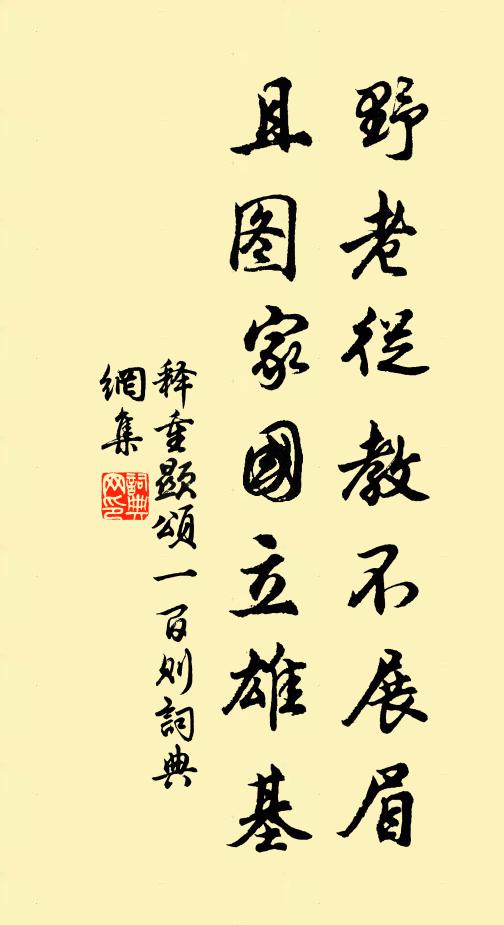 野老從教不展眉
且图家國立雄基
释重顯頌一百则詞典
網集
詞典
网印